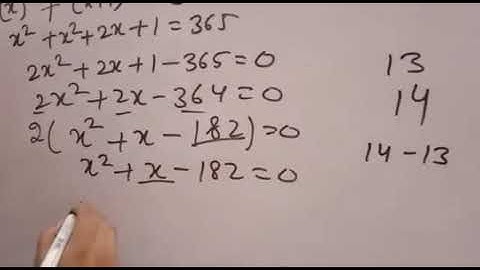 x² + x² + 2x + 1 = 365
2x² + 2x + 1 - 365 = 0
2x² + 2x - 364 = 0
2(x² + x - 182) = 0
x² + x - 182 = 0
13
14
14 - 13